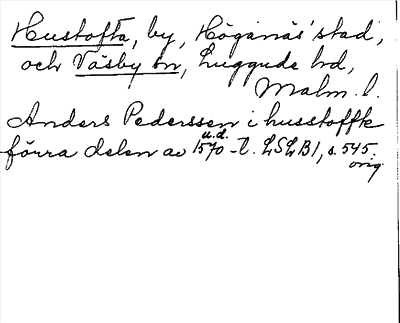 Hustofta, by, Höganäs' stad,
och Väsby sn, Luggude hd,
Malm. l.
Anders Pederssen i husstoffte
u.d.
förra delen av 1570-t. LSLB1, s. 545.
orig